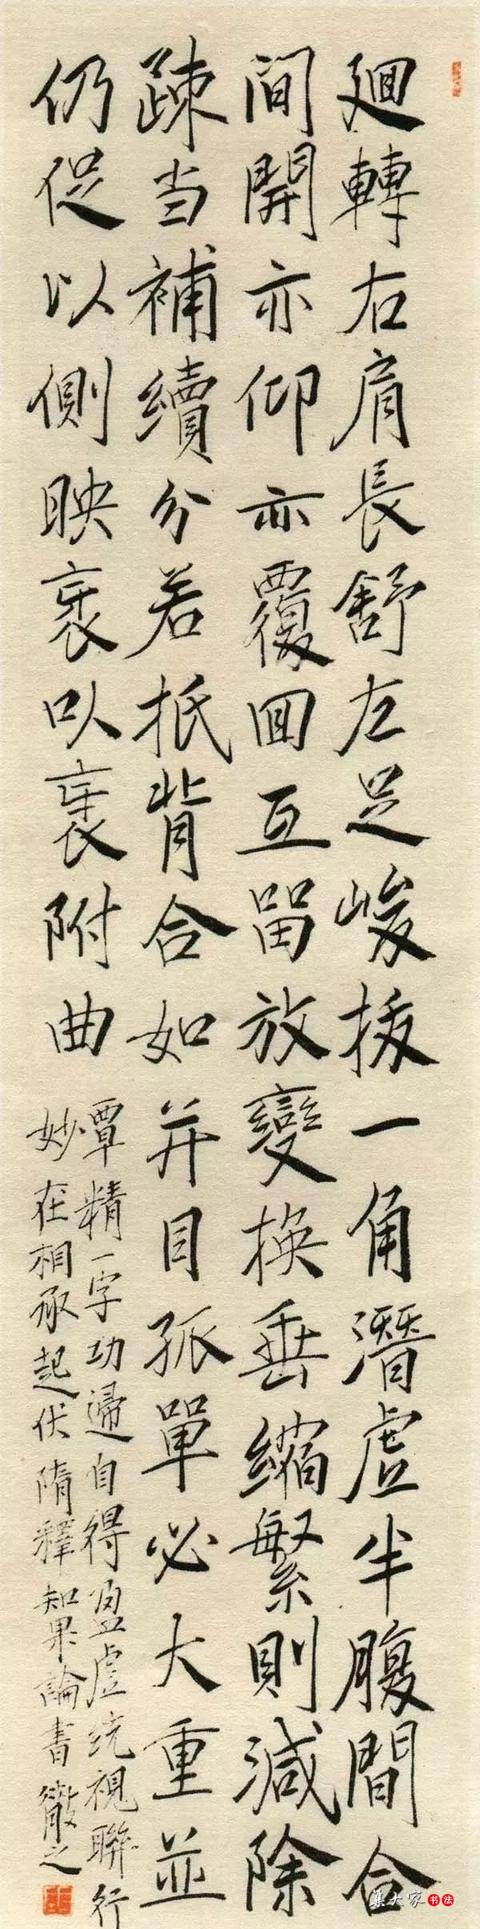 廻轉右肩長舒左足峻拔一角潛虛半腹間合
間開亦仰亦覆回互留放變換垂縮繁則減除
疎当補續分若抵背合如并目孤單必大重並
仍促以側映衺以衺附曲
覃精一字功歸自得盈虛統視聯行
妙在相承起伏隋釋智果論書徹之
集大家书法